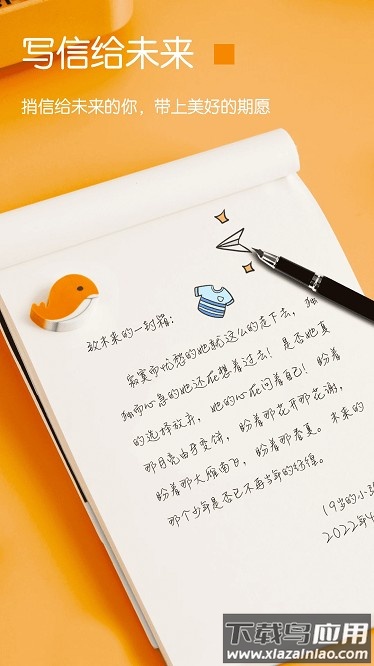 写信给未来
捎信给未来的你，带上美好的期愿
致未来的一封箱：
寂寞而忧愁的她就这么的走下去，独
独而心急的她还在想着过去！是否她真
的选择放弃，她的心在问着自己！盼着
那月亮由牙变饼，盼着那花开那花谢，
盼着那大雁南飞，盼着那春夏。未来的
那个少年是否已不再当年的好缘。
19岁的小
2022年4
下载鸟应用
www.xiazainiao.com